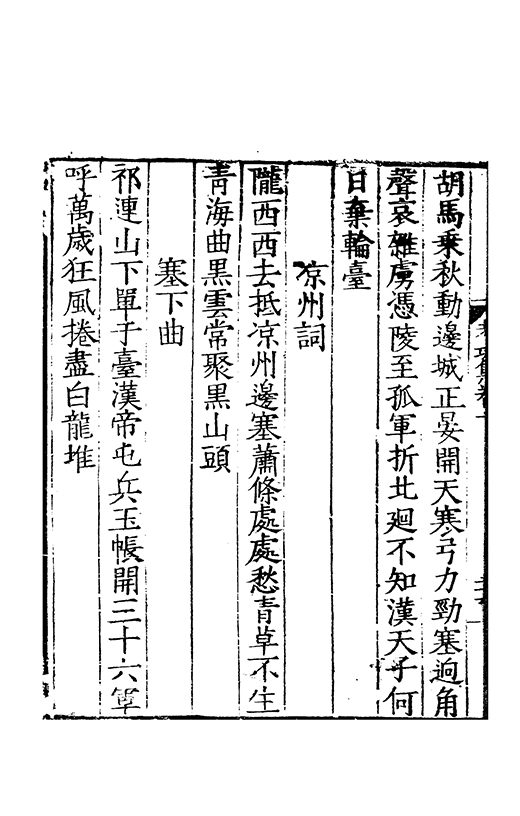 胡馬乗秋動邊城正晏開天寒弓力勁塞逈角
聲哀雜虜憑陵至孤軍折北廻不知漢天子何
日棄輪臺
凉州詞
隴西西去抵凉州邊塞蕭條處處愁青草不生
青海曲黒雲常聚黒山頭
塞下曲
祁連山下單于臺漢帝屯兵玉帳開三十六軍
呼萬歲狂風捲盡白龍堆